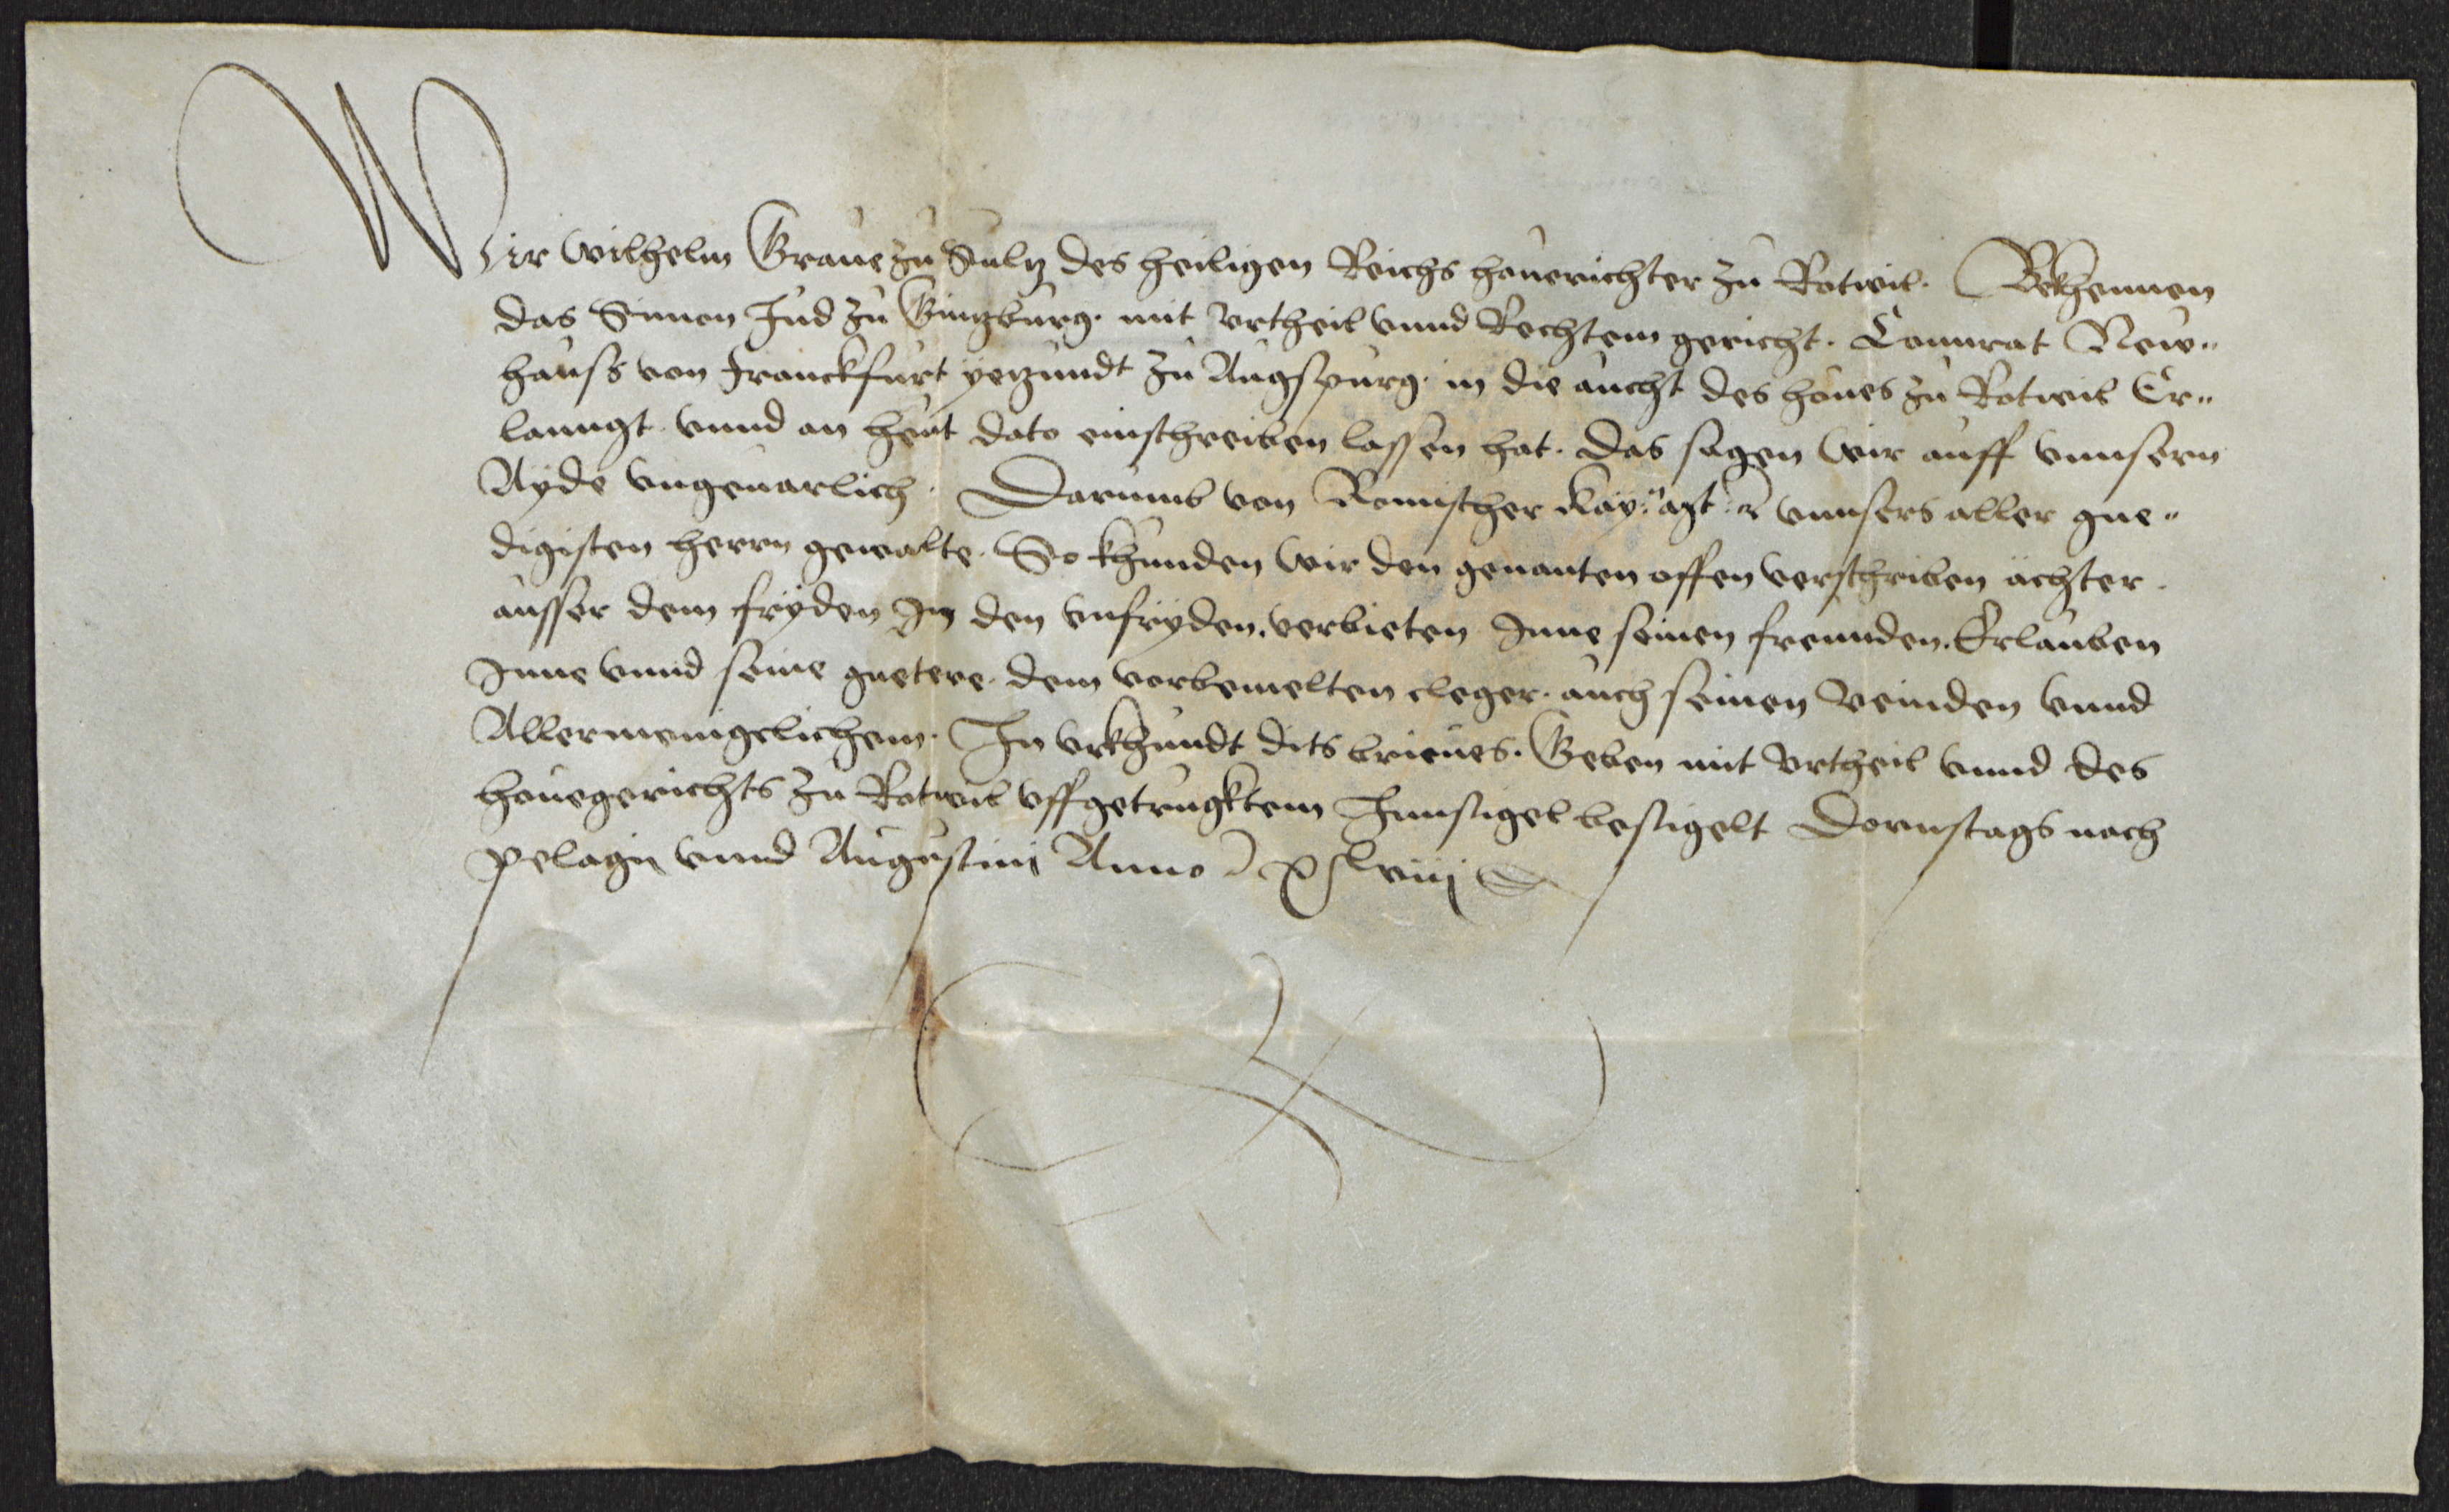 Wir Wilhelm Graue zu Sulz des heiligen Reichs houerichter zu Rotwil. Bekhennen
das Simon Jud zu Gintzburg. mit vrtheil vnnd Rechtem gericht. Connrat New„
hauss von Franckfurt yetzundt zu Augspurg. in die aucht des houes zu Rotwil Er„
lanngt. vnnd an heut dato einschreiben lassen hat. das sagen wir auff vnnsern
Ayde vngeuarlich. Darumb von Romischer Kay: Mgt: vnnsers aller gne„
digisten herrn gewalte. So khunden wir den genanten offen verschriben ächter.
ausser dem fryden Jn den vnfryden. verbieten Jnne seinen freunden. Erlauben
Jnne vnnd seine guetere. dem vorbemelten cleger. auch seinen veinden vnnd
Allermenigelichem. Jn vrkhundt dits brieues. Geben mit vrtheil vnnd des
houegerichts zu Rotwil vffgetrugktem Jnnsigel besigelt Dornstags nach
Pelagij vnnd Augustini Anno xlviij